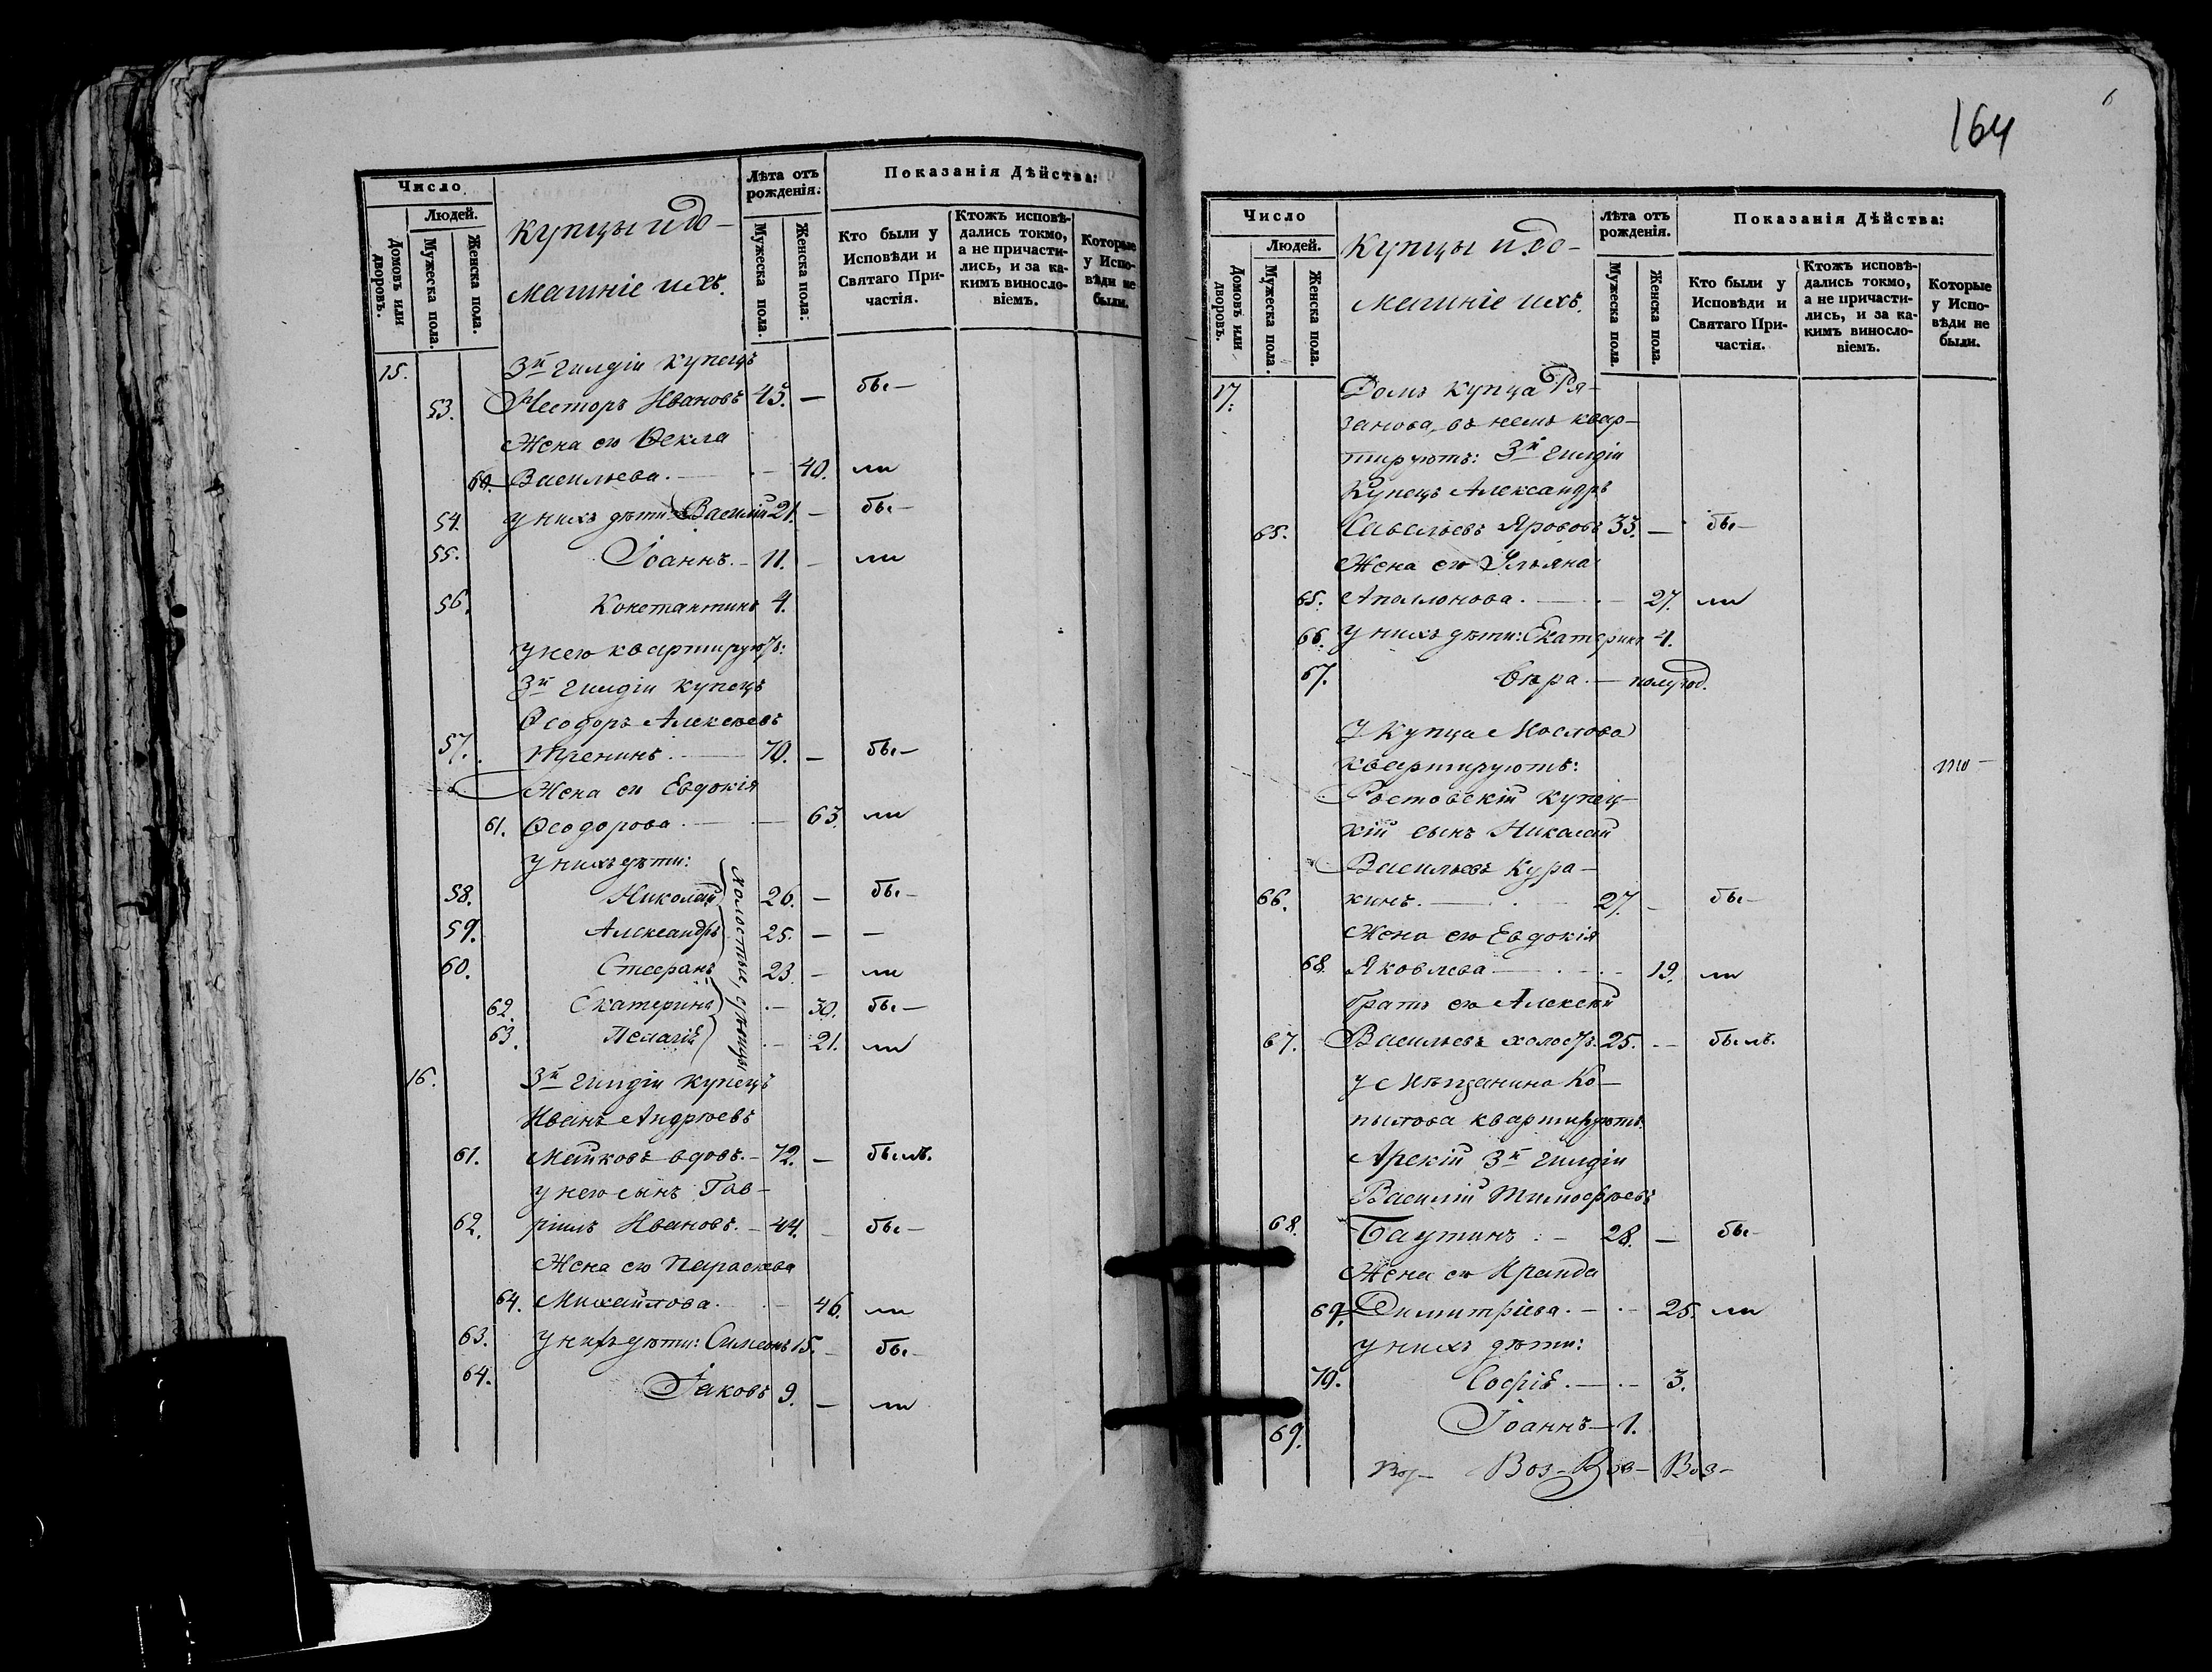 Число
Людей.
Домовъ или дворовъ.
Мужеска пола.
Женска пола.
Купцы и до-
машніе ихъ.
Лѣта отъ рожденія.
Мужеска пола.
Женска пола.
Показанія Дѣйства:
Кто были у Исповѣди и Святаго Причастія.
Ктожъ исповѣдались токмо, а не причастились, и за какимъ винословіемъ.
Которые у Исповѣди не были.
15. 3й гилдіи купецъ
53. Несторъ Ивановъ 45. — бы-
Жена его Ѳекла
60. Васильева. — 40. ли
54. у нихъ дѣти: Василій 21. — бы-
55. Іоаннъ. — 11. — ли
56. Константинъ 4.
у него квартируютъ:
3й гилдіи купецъ
Ѳеодоръ Алексѣевъ
57. 70. — бы-
Жена его Евдокія
61. Ѳеодорова — 63. ли
у нихъ дѣти:
58. Николай 26. — бы-
59. Александръ 25. — —
60. Стефанъ 23. — ли
62. Екатерина — 30. бы-
63. Пелагіѣ — 21. ли
холостые, дѣвицы
16. 3й гилдіи купецъ
Иванъ Андрѣевъ
61. Майковъ вдовъ. — 72. — былъ.
у него сынъ Гав-
62. ріилъ Ивановъ. — 44. — бы-
Жена его Параскева
64. Михайлова. — 46. ли
63. у нихъ дѣти: Симеонъ 15. — бы-
64. Іаковъ 9. — ли
164
6
Число
Людей.
Домовъ или дворовъ.
Мужеска пола.
Женска пола.
Купцы и до-
машніе ихъ.
Лѣта отъ рожденія.
Мужеска пола.
Женска пола.
Показанія Дѣйства:
Кто были у Исповѣди и Святаго Причастія.
Ктожъ исповѣдались токмо, а не причастились, и за какимъ винословіемъ.
Которые у Исповѣди не были.
17. Домъ купца Ря-
занова, въ немъ квар-
тируютъ: 3й гилдіи
Купецъ Александръ
65. Савельевъ Ярововъ 33. — бы-
Жена его Ульяна
65. Аполлонова. — 27. ли
66. у нихъ дѣти: Екатерина 4.
67. Вѣра. — полугод.
У купца Маслова
квартируютъ:
Ростовскій купец-
кій сынъ Николай
Васильевъ Кура-
66. кинъ. — 27. — бы-
Жена его Евдокія
68. Яковлева — 19. ли
братъ его Алексѣй
67. Васильевъ холостъ. 25. — былъ.
у мѣщанина Ко-
пылова квартируютъ
Арскій 3й гилдіи
Василій Тимоѳѣевъ
68. Баутинъ. — 28. — бы-
Жена его Ираида
69. Димитріева. — 25. ли
у нихъ дѣти:
70. Софіѣ. — 3.
69. Іоаннъ — 1.
Воз- Воз- Воз- Воз-